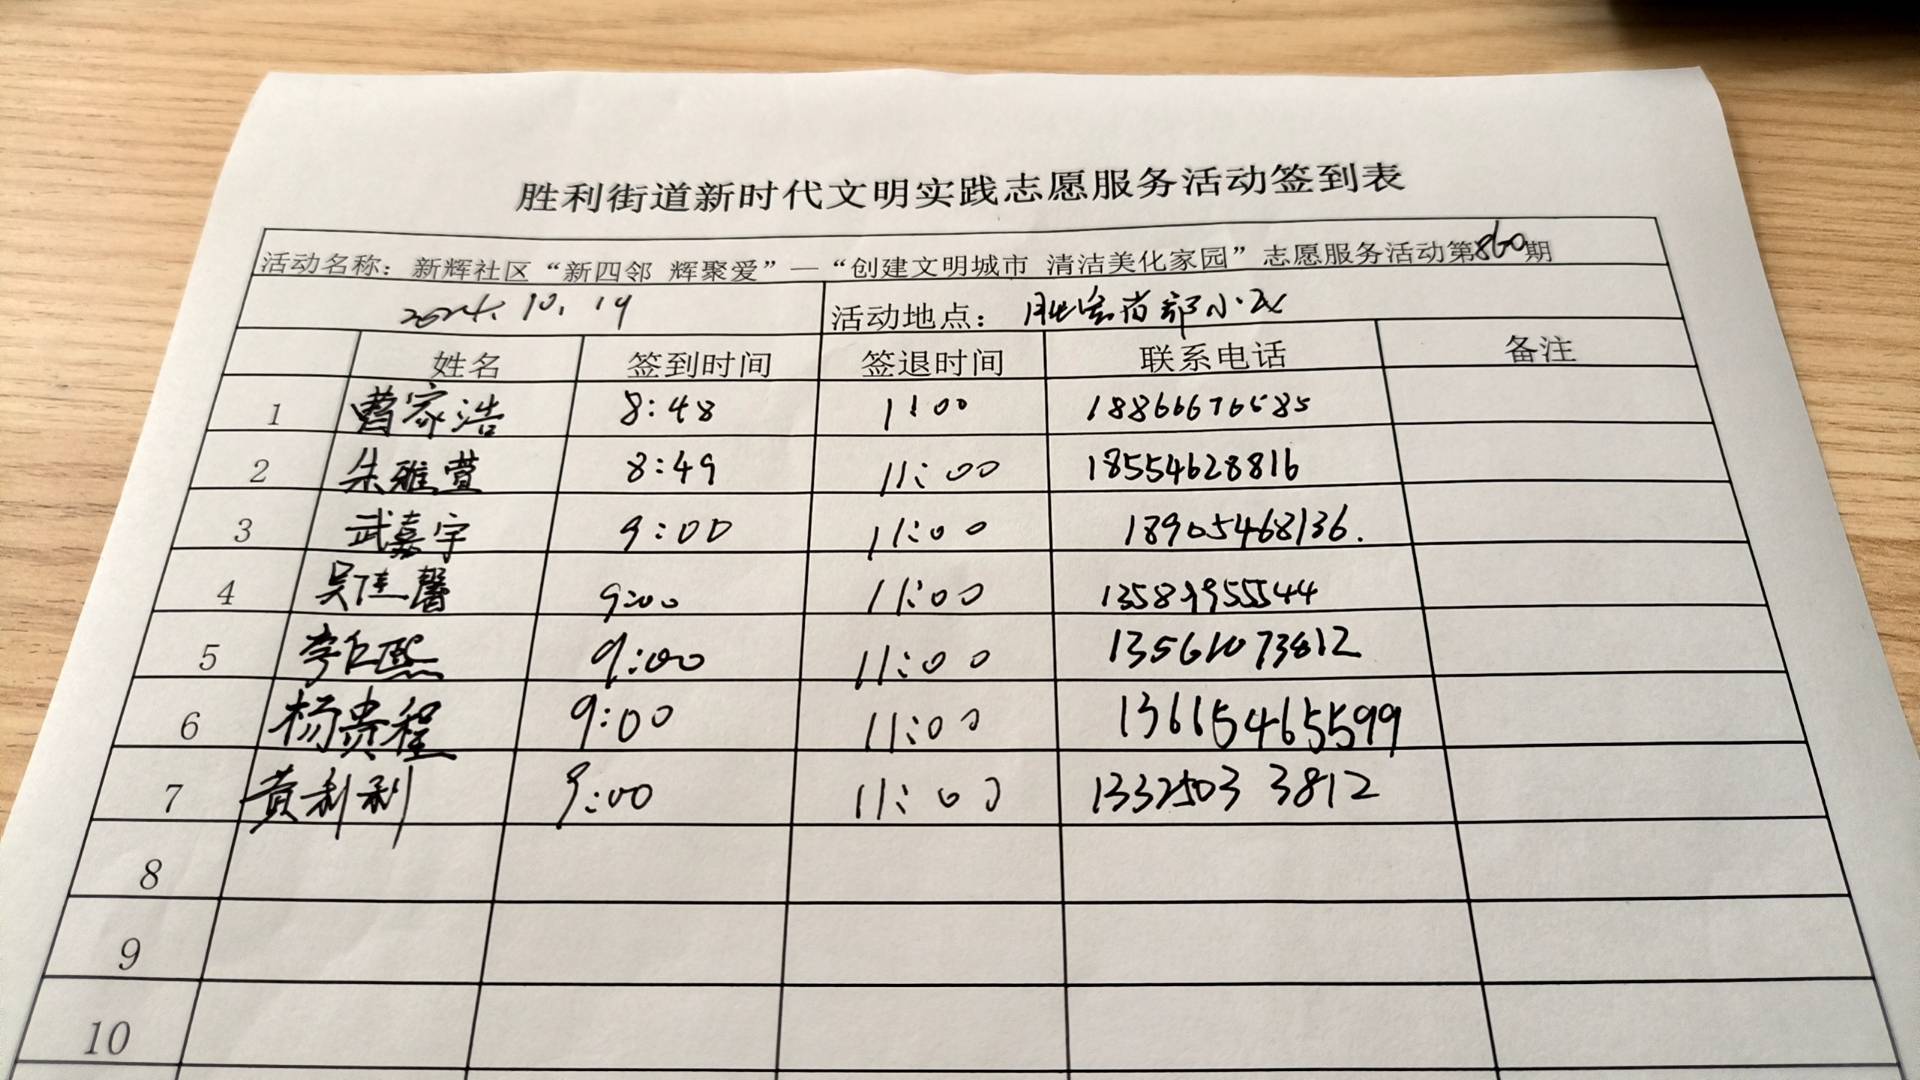 胜利街道新时代文明实践志愿服务活动签到表
活动名称：新辉社区“新四邻 辉聚爱”—“创建文明城市 清洁美化家园”志愿服务活动第860期
2024.10.19 活动地点：
姓名 签到时间 签退时间 联系电话 备注
1 曹家浩 8:48 11:00
2 朱雅萱 8:49 11:00 18554628816
3 武嘉宇 9:00 11:00 18905468136.
4 吴佳馨 9:00 11:00 13589955544
5 李仁熙 9:00 11:00 13561073812
6 杨贵程 9:00 11:00 13615465599
7 黄利利 9:00 11:00 13325033812
8
9
10